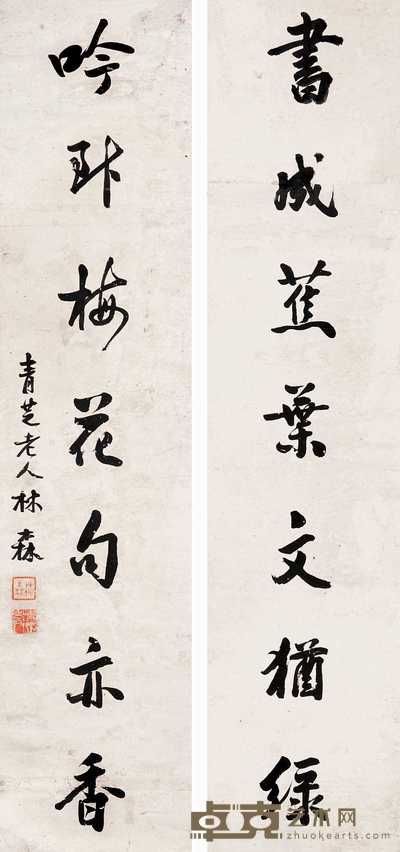 書成蕉葉文猶綠
吟到梅花句亦香
青芝老人林森
卓克艺术网
zhuokearts.com